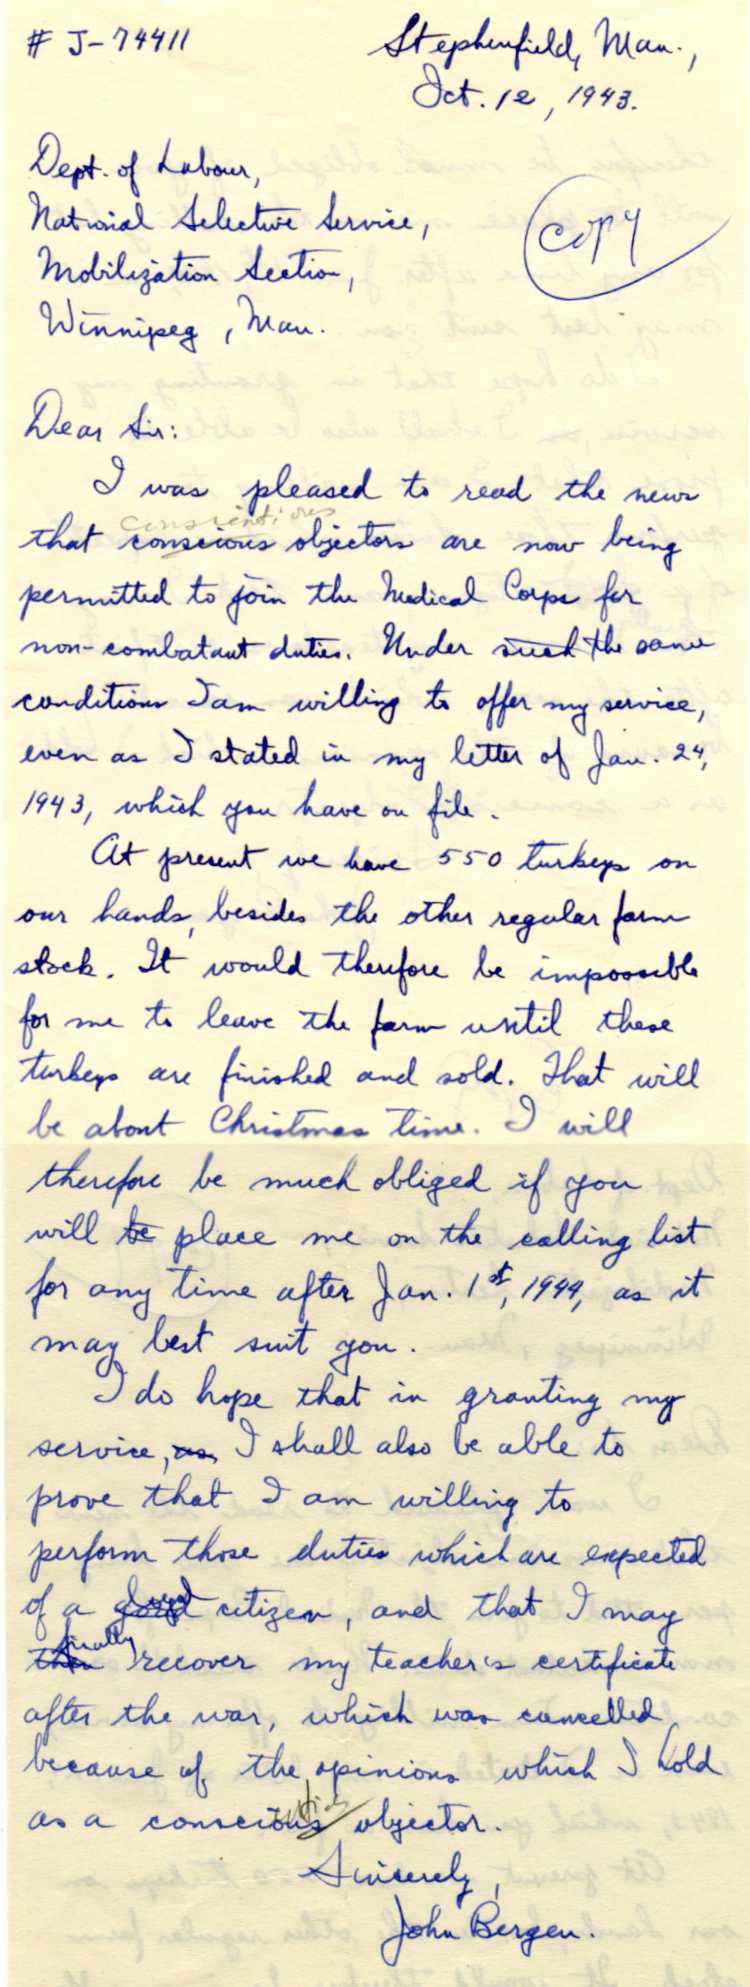 # J-74411
Stephenfield, Man.,
Oct. 12, 1943.
Dept. of Labour,
National Selective Service,
Mobilization Section,
Winnipeg, Man.
COPY
Dear Sir:
I was pleased to read the news
conscientious
that conscious objectors are now being
permitted to join the Medical Corps for
non-combatant duties. Under such the same
conditions I am willing to offer my service,
even as I stated in my letter of Jan. 24,
1943, which you have on file.
At present we have 550 turkeys on
our hands, besides the other regular farm
stock. It would therefore be impossible
for me to leave the farm until these
turkeys are finished and sold. That will
be about Christmas time. I will
therefore be much obliged if you
will be place me on the calling list
for any time after Jan. 1st, 1944, as it
may best suit you.
I do hope that in granting my
service, as, I shall also be able to
prove that I am willing to
perform those duties which are expected
of a good citizen, and that I may
finally
then recover my teacher's certificate
after the war, which was cancelled
because of the opinions which I hold
as a conscious objector.
Sincerely,
John Bergen.